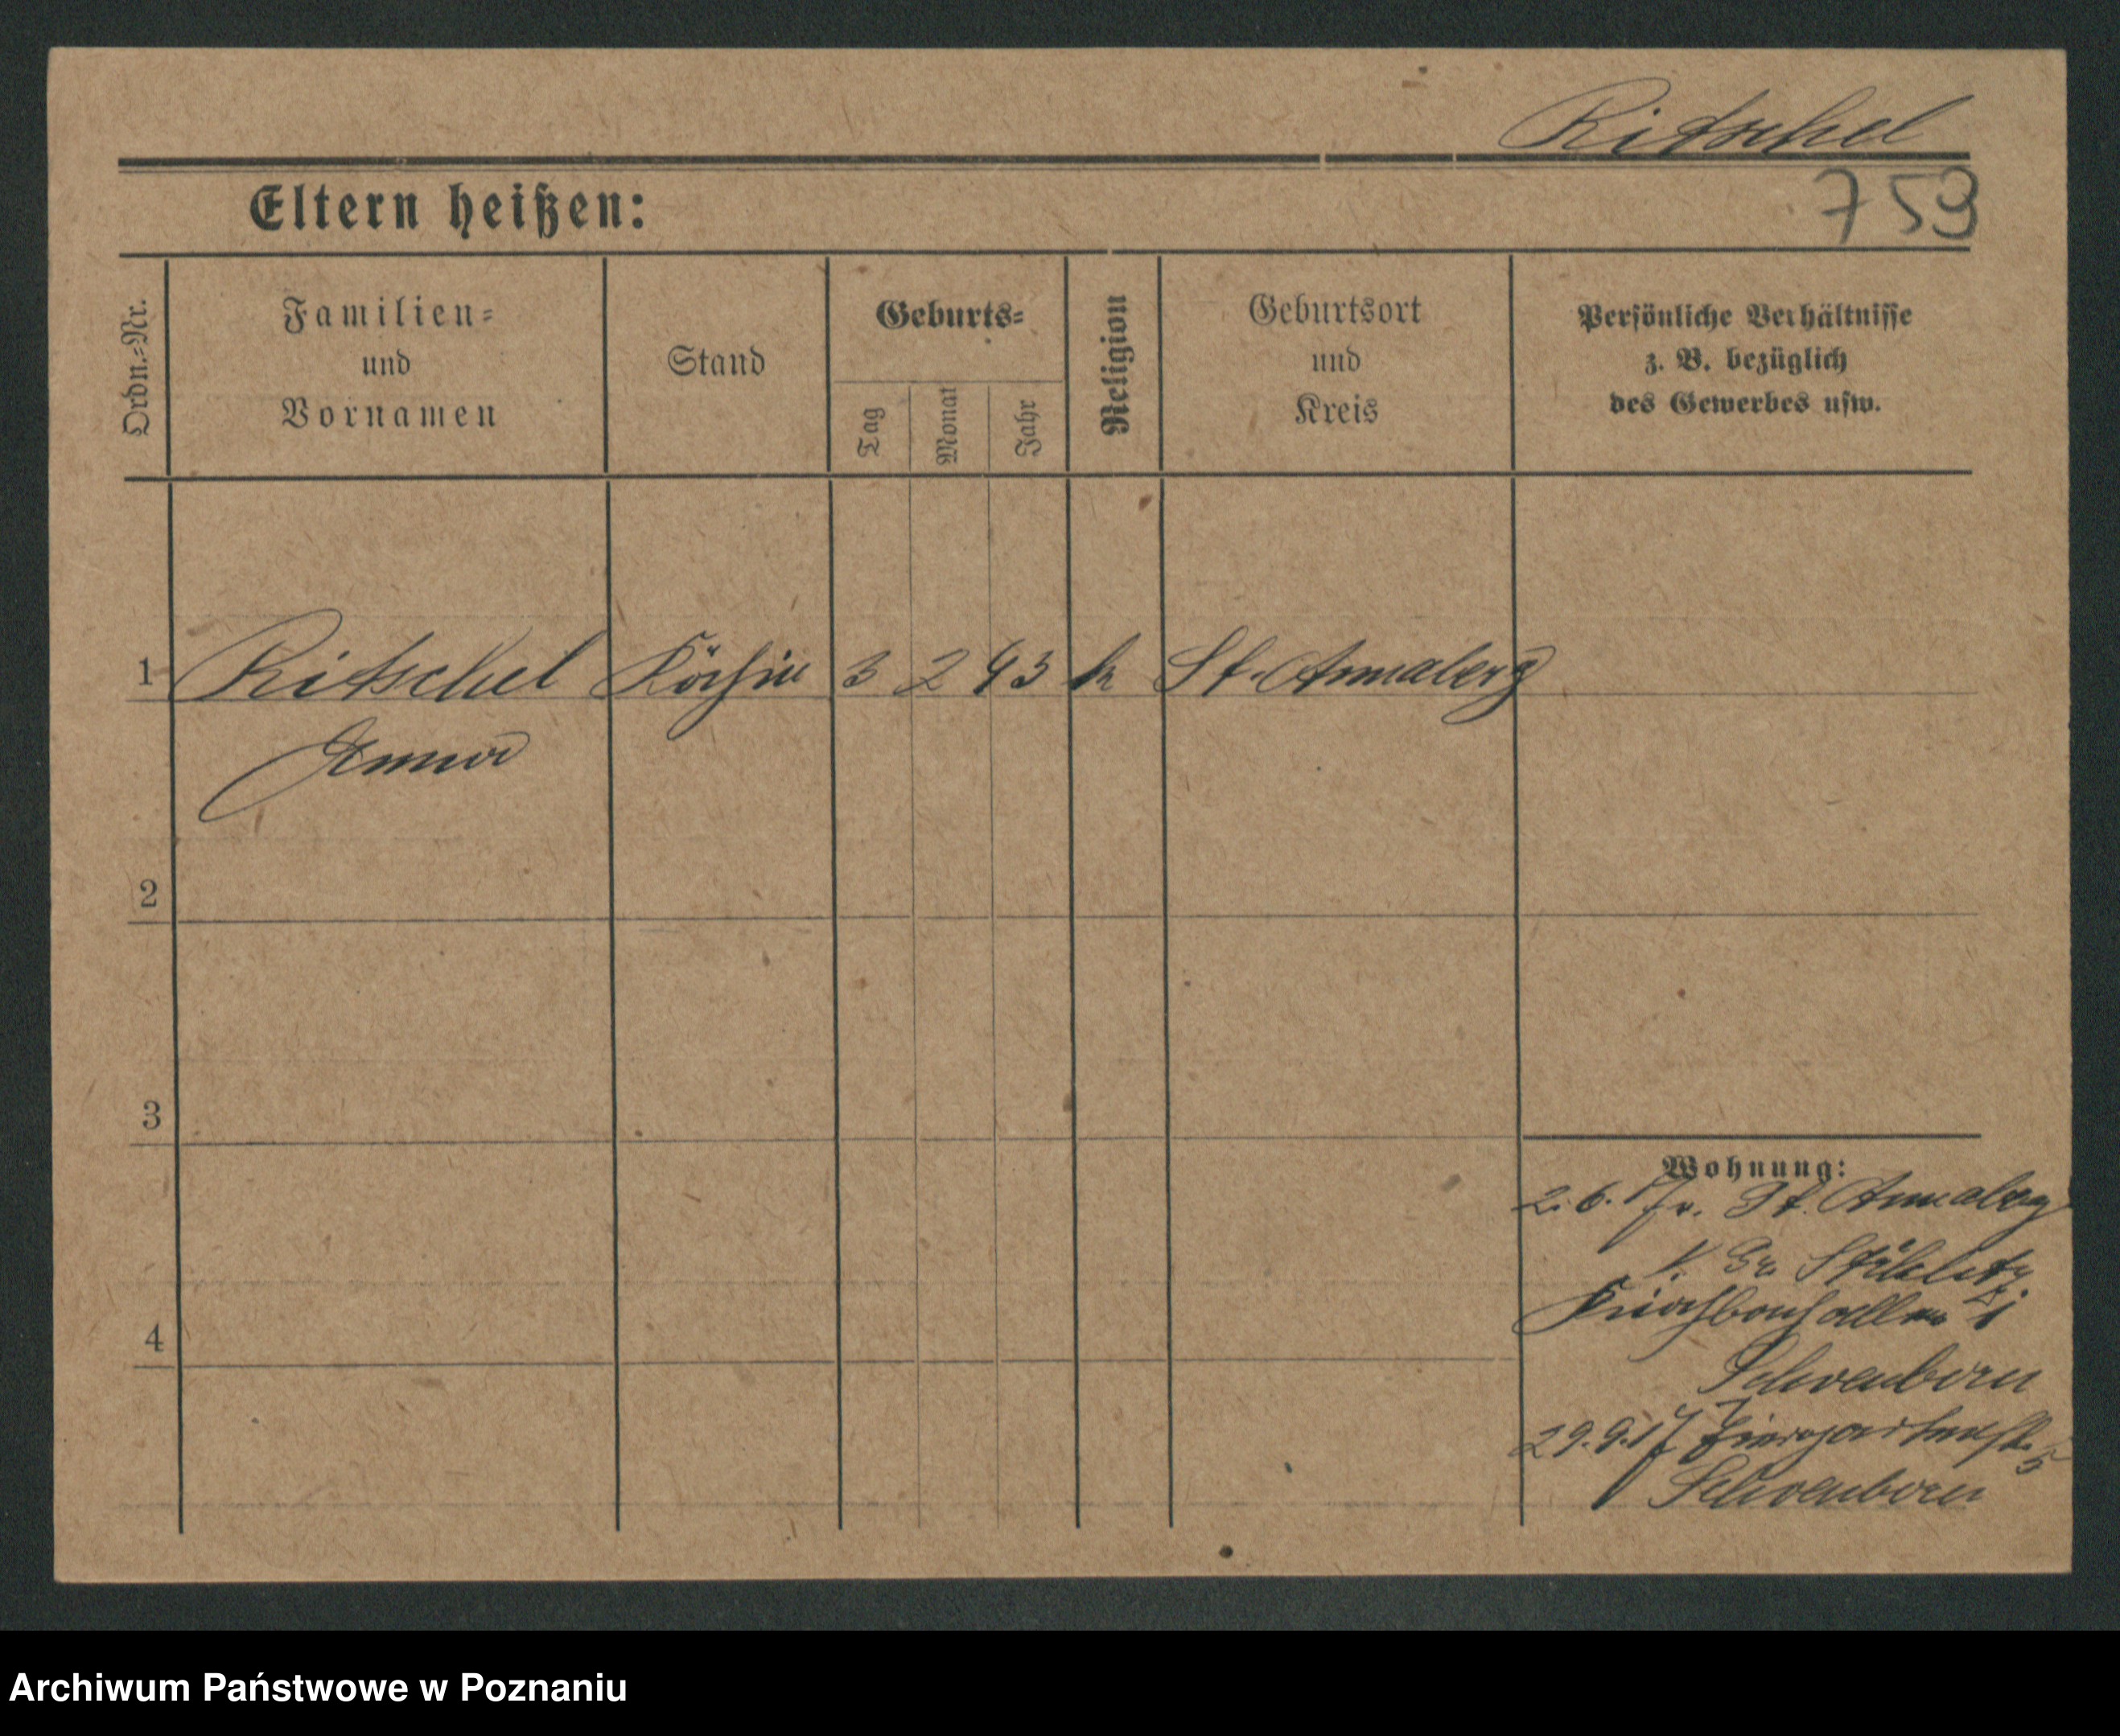 Ritschel
753
Eltern heißen:
Ordn.-Nr.
Familien-
und
Vornamen
Stand
Geburts-
Tag
Monat
Jahr
Religion
Geburtsort
und
Kreis
Persönliche Verhältnisse
z. B. bezüglich
des Gewerbes usw.
1 Ritschel Köchin 3 2 93 k St. Annaberg
Anna
2
3
4
Wohnung:
2.6.17 v. St. Annaberg
Schoenborn
29.9.17 Tiergartenstr. 5
Schoenborn
Archiwum Państwowe w Poznaniu